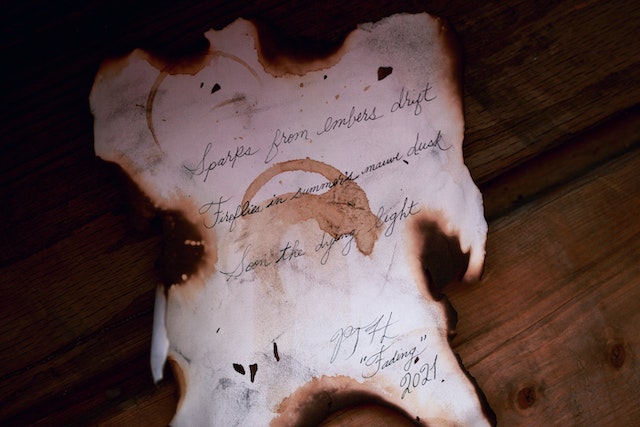 Sparks from embers drift
Fireflies in summer's mauve dusk
Soon the dying light
"Fading"
2021.